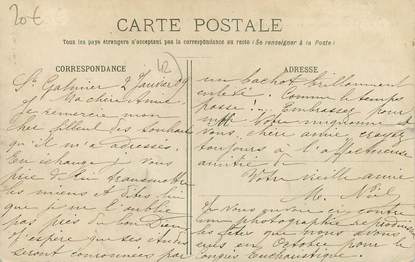 20€
CARTE POSTALE
Tous les pays étrangers n'acceptant pas la correspondance au recto (Se renseigner à la Poste)
CORRESPONDANCE
12
ADRESSE
St Galmier 2 Janvier 09
Ma chère amie
Je remercie mon
cher filleul des souhaits
qu'il m'a adressés.
En échange je vous
prie de lui transmettre
les miens et dites lui
que je ne l'oublie
pas près du bon Dieu
J'espère que ses études
seront couronnées par
un bachot brillamment
enlevé. Comme le temps
passe! Embrassez pour
moi votre mignonne et
vous, chère amie, croyez
toujours à l'affectueuse
amitié de
Votre vieille amie
M. Noël
Je vous envoie ci contre
une photographie reproduisant
les fêtes que nous avons
eues en Octobre pour le
congrès Eucharistique.